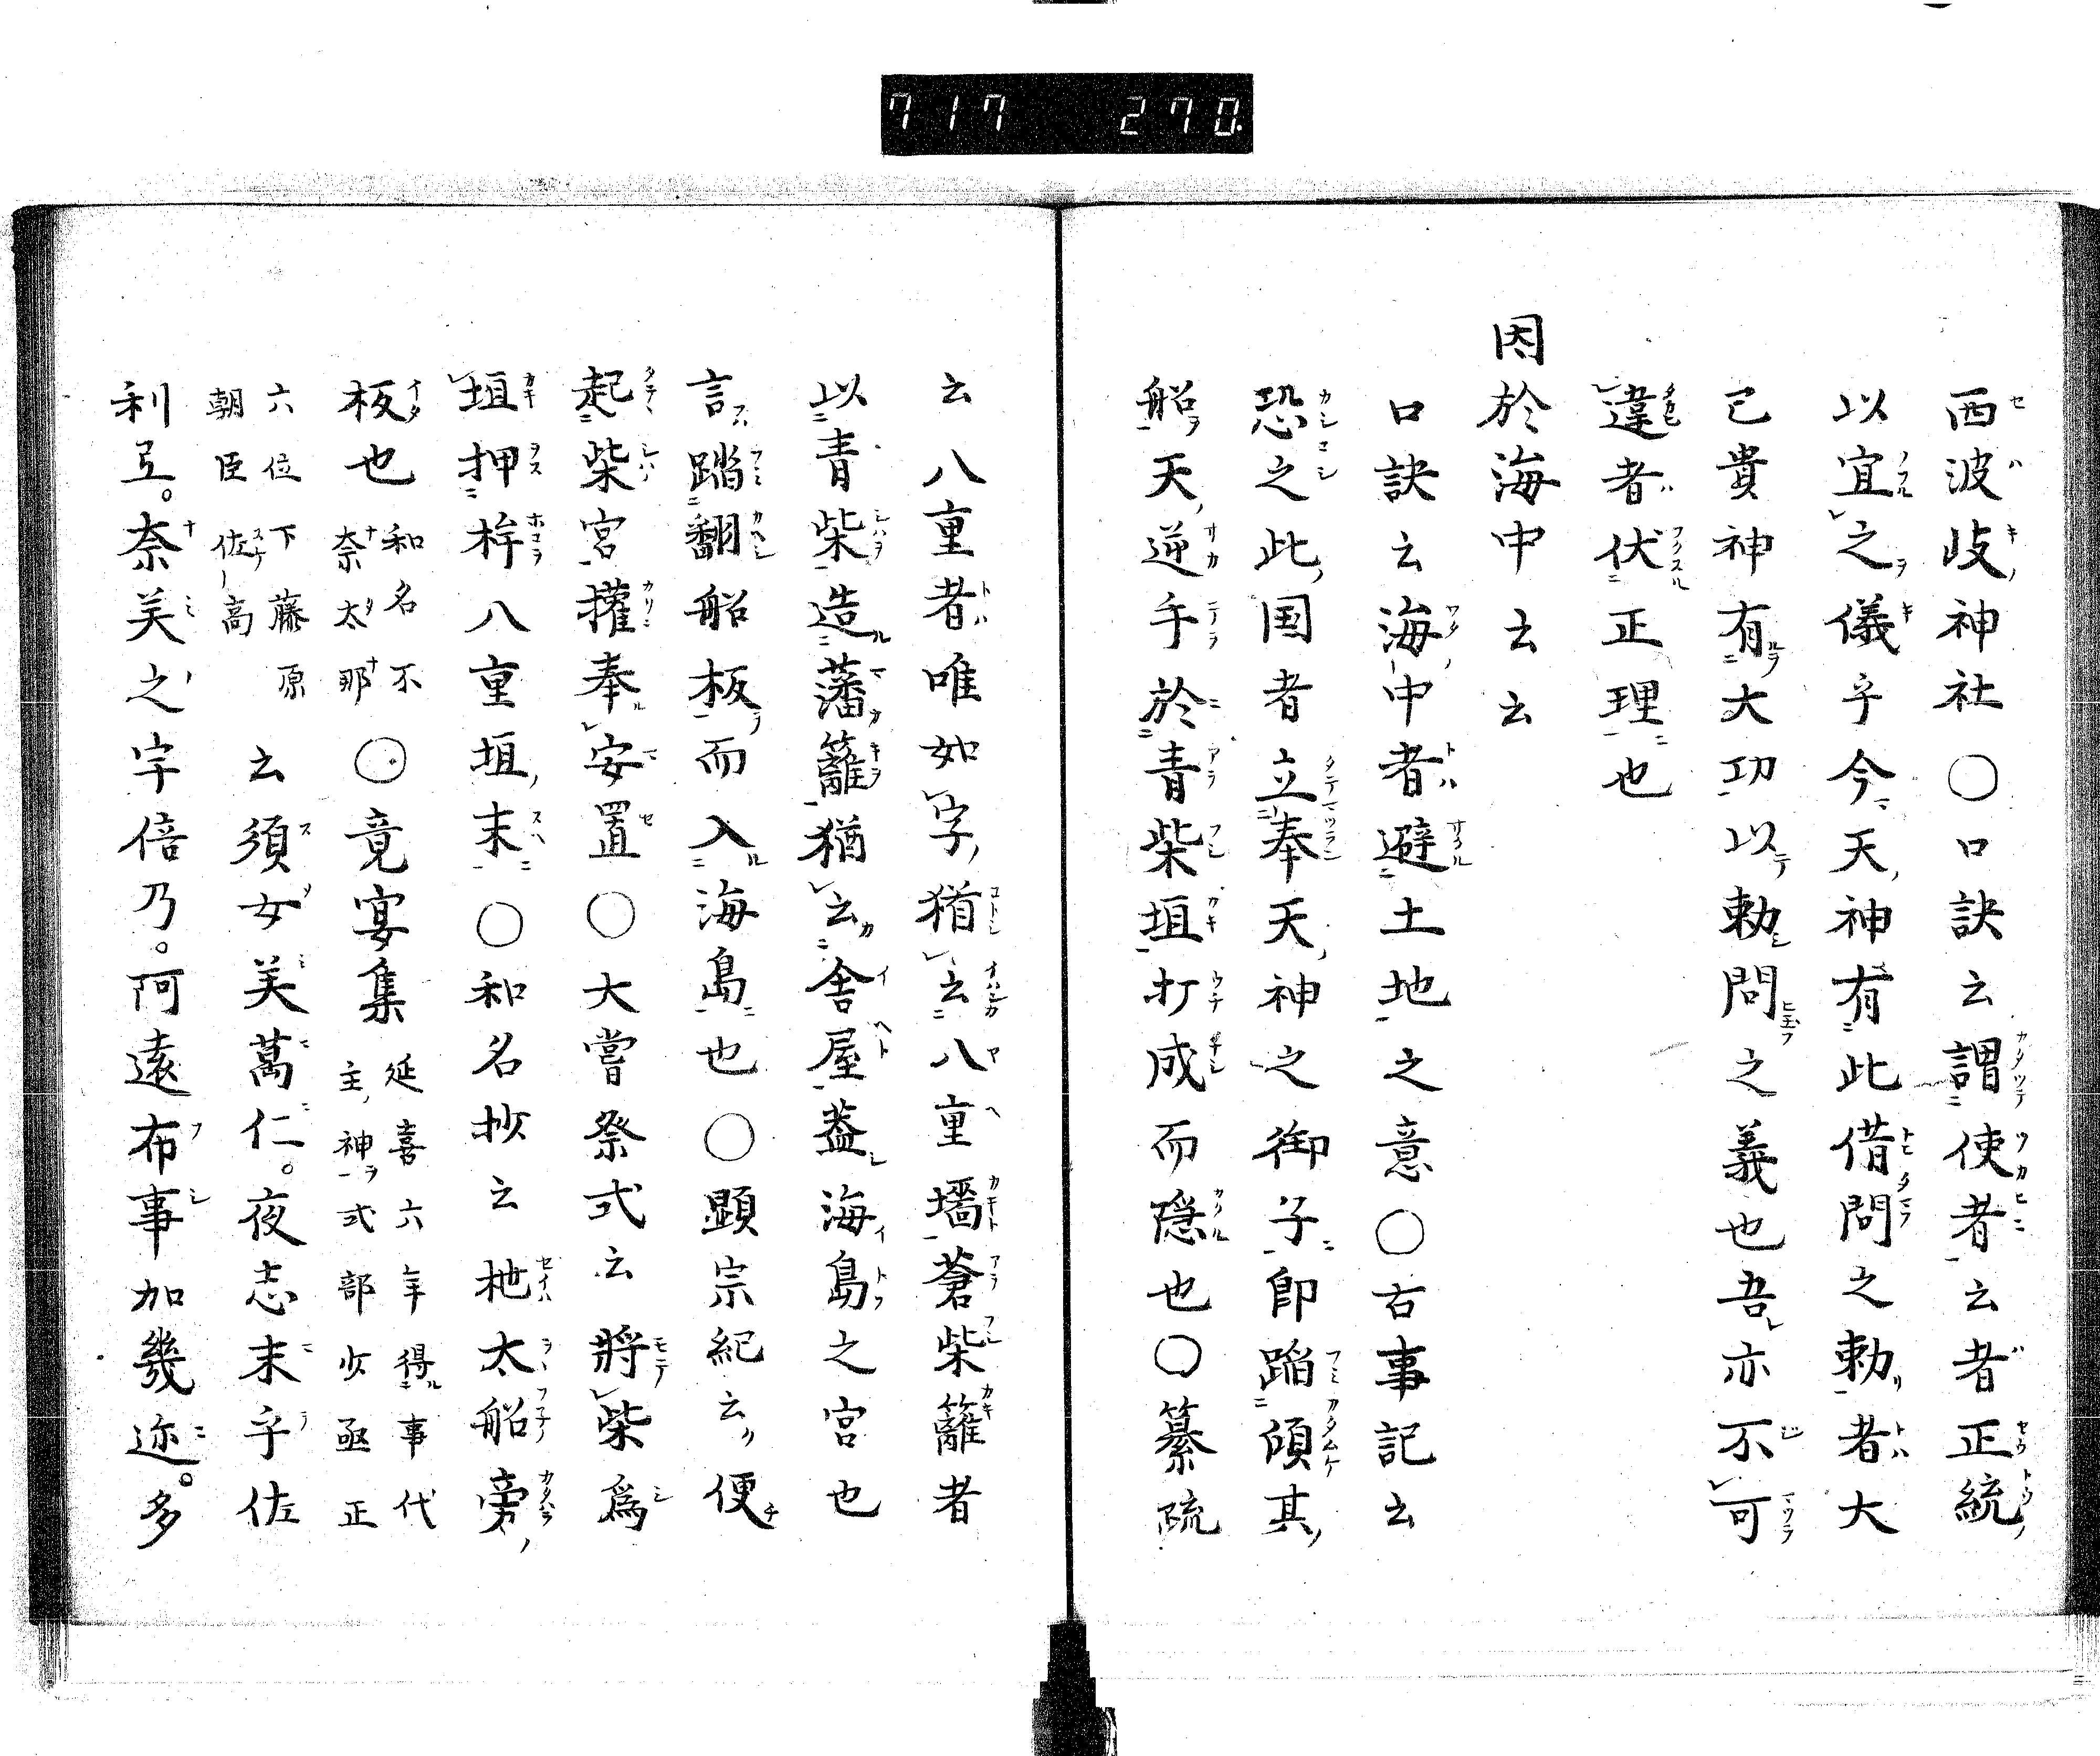 717 270
西波岐神社○口訣云謂使者云者正統
以宜之儀乎今天神有此借問之勅者大
已貴神有大功以勅問之義也吾亦不可
違者伏正理也
因於海中云云
口訣云海中者避土地之意○古事記云
恐之此国者立奉天神之御子即蹈傾其
船天逆手於青柴垣打成而隠也○纂疏
云八重者唯如字猶云八重墻蒼柴籬者
以青柴造藩籬猶云舎屋蓋海島之宮也
言蹈翻船板而入海島也○顕宗紀云便
起柴宮権奉安置○大嘗祭式云将柴為
垣押桙八重垣末○和名抄云枻太船旁
板也和名不奈太那○竟宴集延喜六年得事代主神式部少丞正
六位下藤原朝臣佐高云須女美萬仁。夜志末乎佐
利弖。奈美之字倍乃。阿遠布事加幾迩。多